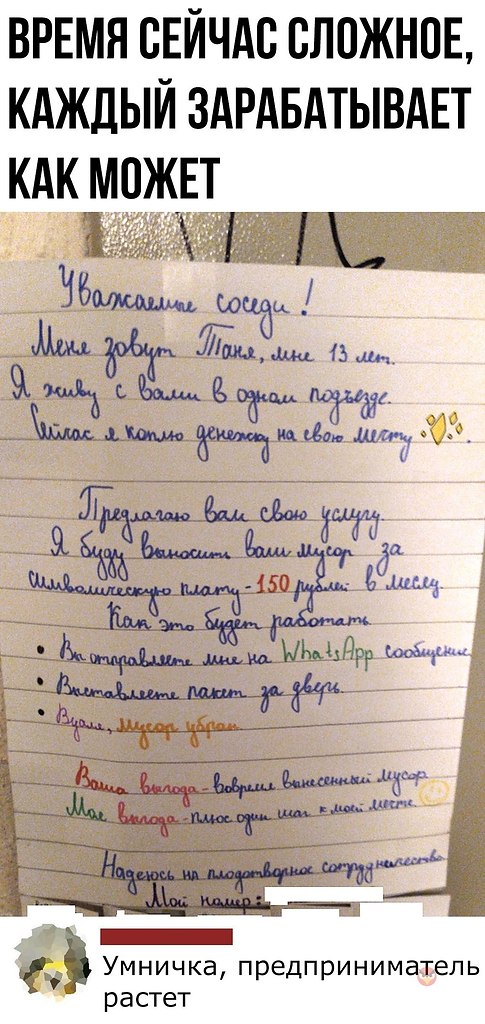 ВРЕМЯ СЕЙЧАС СЛОЖНОЕ,
КАЖДЫЙ ЗАРАБАТЫВАЕТ
КАК МОЖЕТ
Уважаемые соседи!
Меня зовут Таня, мне 13 лет.
Я живу с вами в одном подъезде.
Сейчас я коплю денежку на свою мечту
Предлагаю вам свою услугу.
Я буду выносить ваш мусор за
символическую плату - 150 рублей в месяц.
Как это будет работать
• Вы отправляете мне на WhatsApp сообщение
• Выставляете пакет за дверь.
• Вуаля, мусор убран
Ваша выгода - вовремя вынесенный мусор
Моя выгода - плюс один шаг к моей мечте
Надеюсь на плодотворное сотрудничество
Мой номер:
Умничка, предприниматель
растет